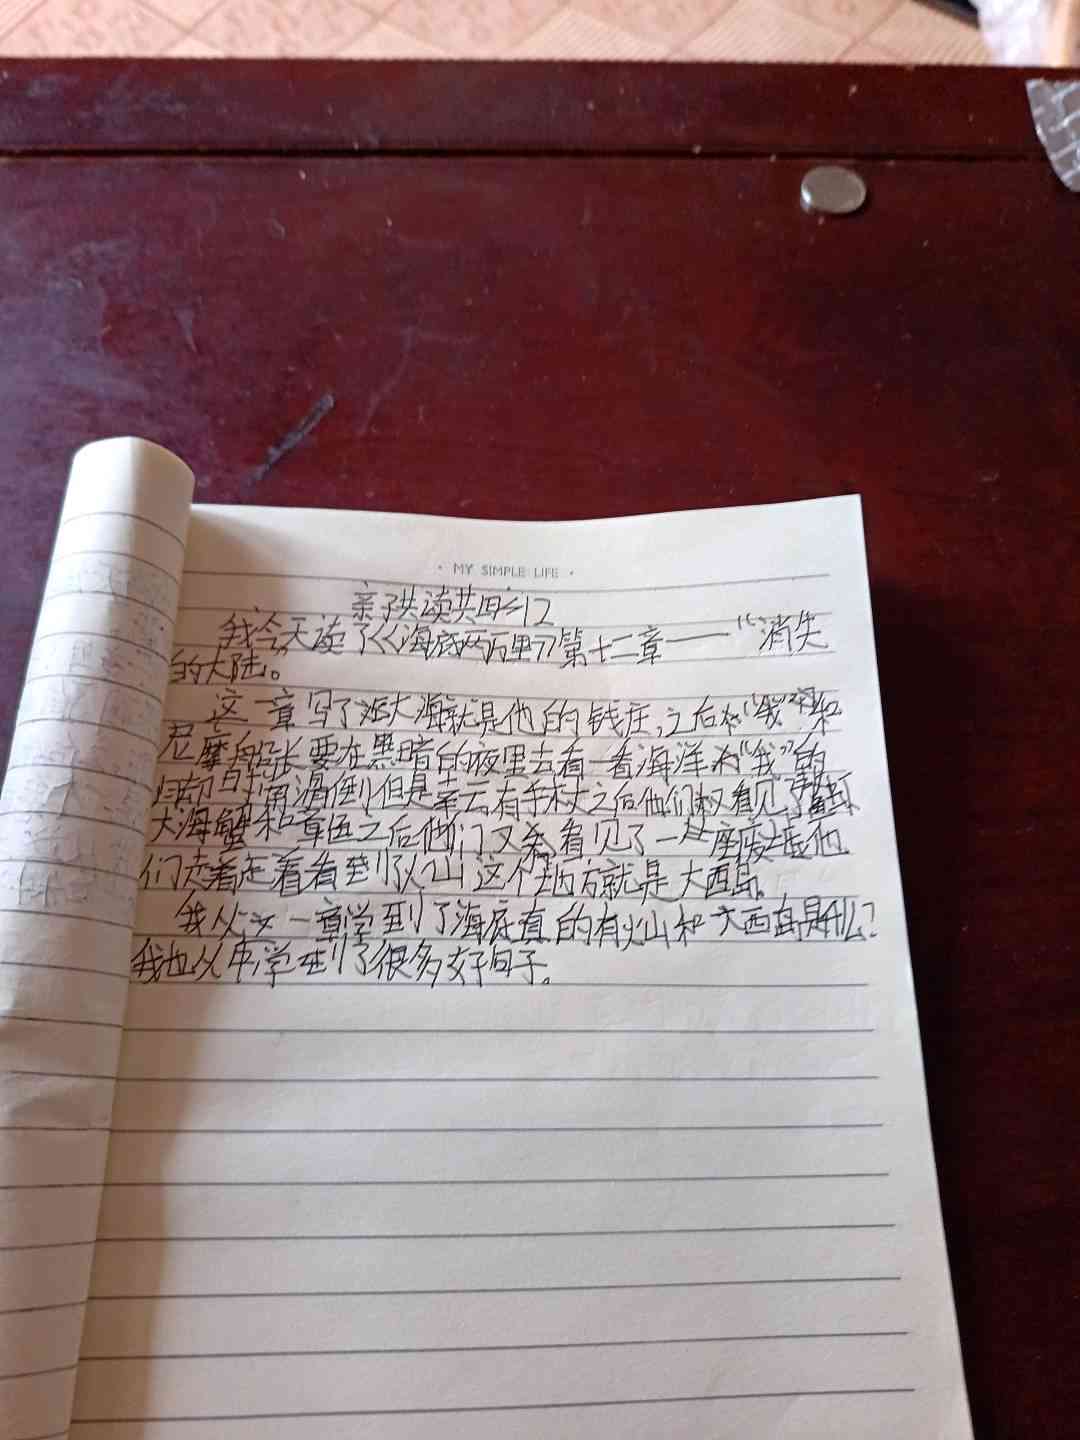 · MY SIMPLE LIFE ·
亲子共读共成长12
我今天读了《海底两万里》第十二章——“消失
的大陆。
这一章写了大海就是他的钱庄,之后“我”和
尼摩船长要在黑暗的夜里去看一看海洋“我”的
滑倒但是幸云有手杖之后他们又看见了
大海蟹和章鱼之后他们又看见了一座废墟他
们走着走着看到了火山这个地方就是大西岛。
我从这一章学到了海底真的有火山和大西岛是什么?
我也从中学到了很多好句子。